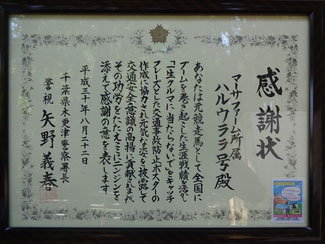 感謝状
マーサファーム所属
ハルウララ号殿
あなたは元競走馬として全国に
ブームを巻き起こした生涯戦績を活かし
「一生クルマに当たらないで」をキャッチ
フレーズとした交通事故防止ポスターの
作成に協力され元気な姿を披露して
交通安全意識の高揚に貢献されました
その功労をたたえここにニンジンを
添えて感謝の意を表します
平成三十年八月二十二日
千葉県木更津警察署長
警視 矢野義春